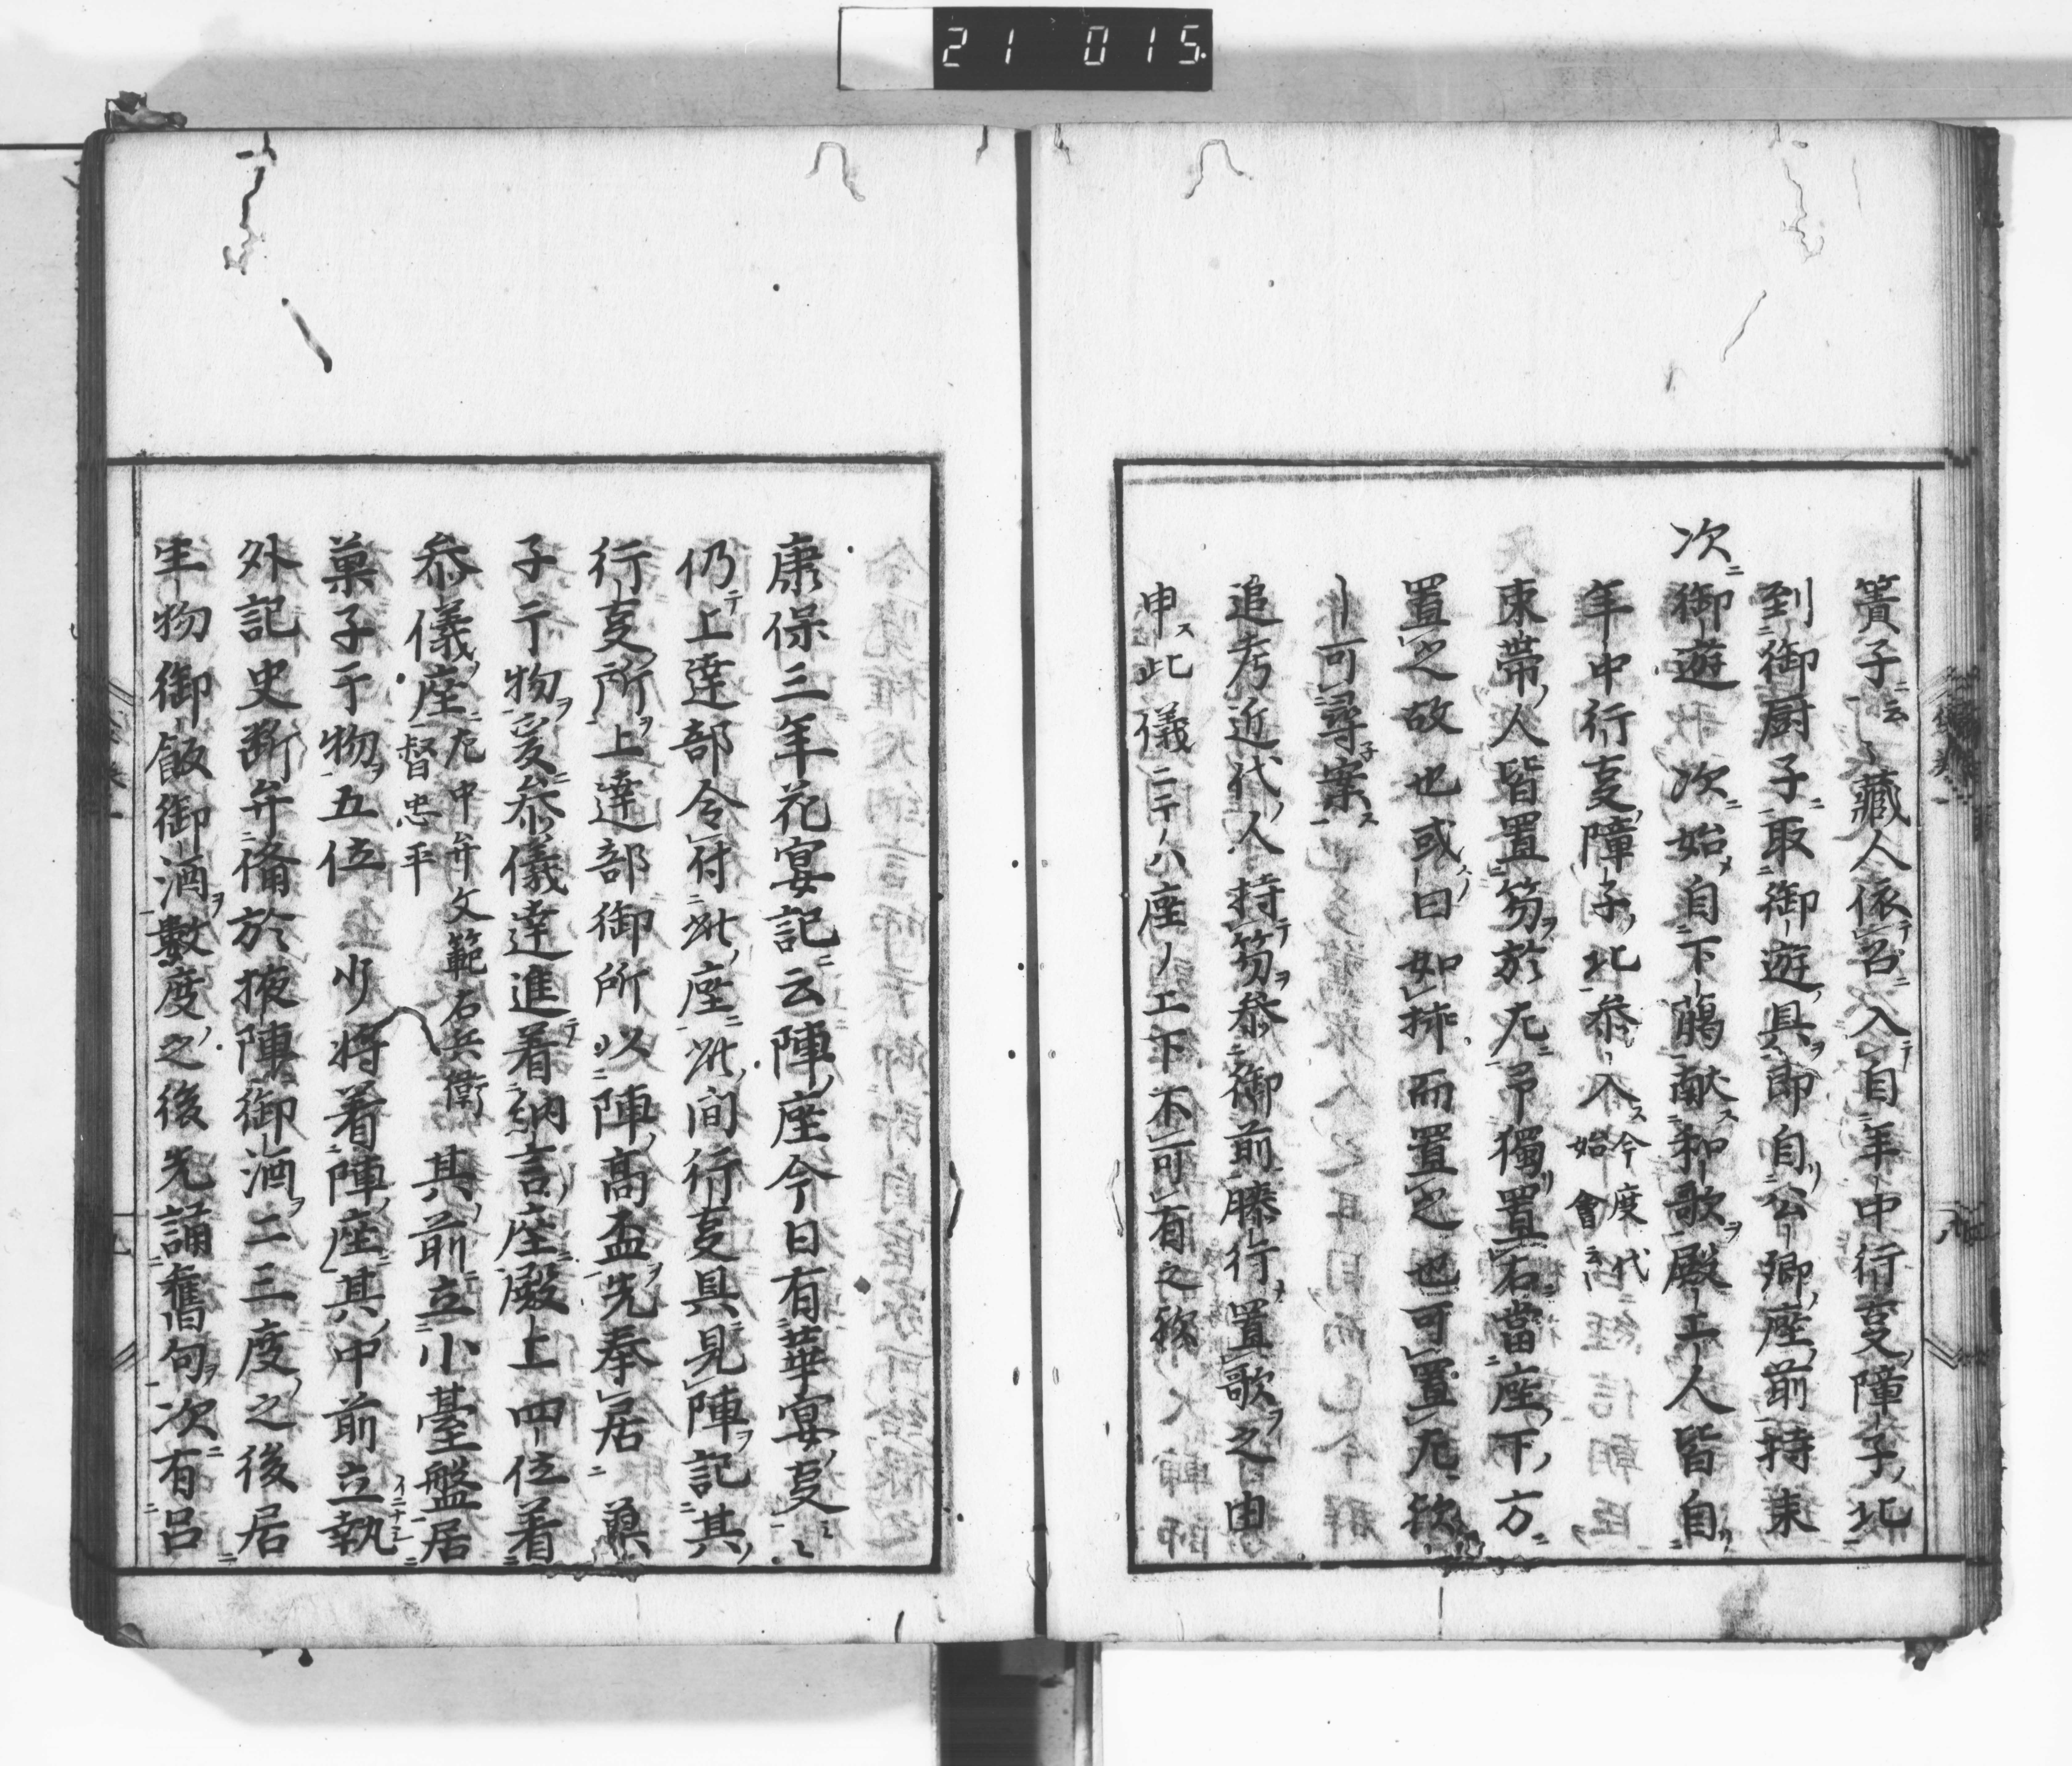 21 015
簀子ニ云々藏人依テ召ニ入テ自年中行事ノ障子ノ北
到御厨子ニ取御遊ノ具ヲ即自リ公卿ノ座ノ前持来
次ニ御遊次ニ始メ自下﨟献ス和歌ヲ殿上人皆自リ
年中行事ノ障子ノ北参入ス今度代始會云々
束帶ノ人皆置笏ヲ於左ニ弓獨リ置右ニ當座ノ下ノ方ニ
置之故也或ハ曰如挿而置之也可置左欤
可尋子案ス
追考近代ノ人持テ笏ヲ参御前膝行置歌ヲ之由
申ス此儀ニテノハ座ノ上下不可有之称
康保三年花宴記ニ云陣ノ座今日有華宴ノ事
仍テ上達部令付此ノ座ニ此ノ間行事具見陣ヲ記ニ其ノ
行事ノ所ヲ上達部御所以ニ陣ノ高盃ヲ先奉居ニ菓
子干物ヲ爰ニ参儀達進テ着納言ノ座ニ殿上四位着
参儀ノ座ニ左中弁文範右兵衛督忠平其ノ前ニ立小臺盤居
菓子干物ヲ五位少将着陣ノ座ニ其ノ中前立執
外記史斯弁備於掖陣御酒ヲ二三度ノ之後居
生物御飯御酒ヲ數度ノ之後先誦舊句ヲ次ニ有呂